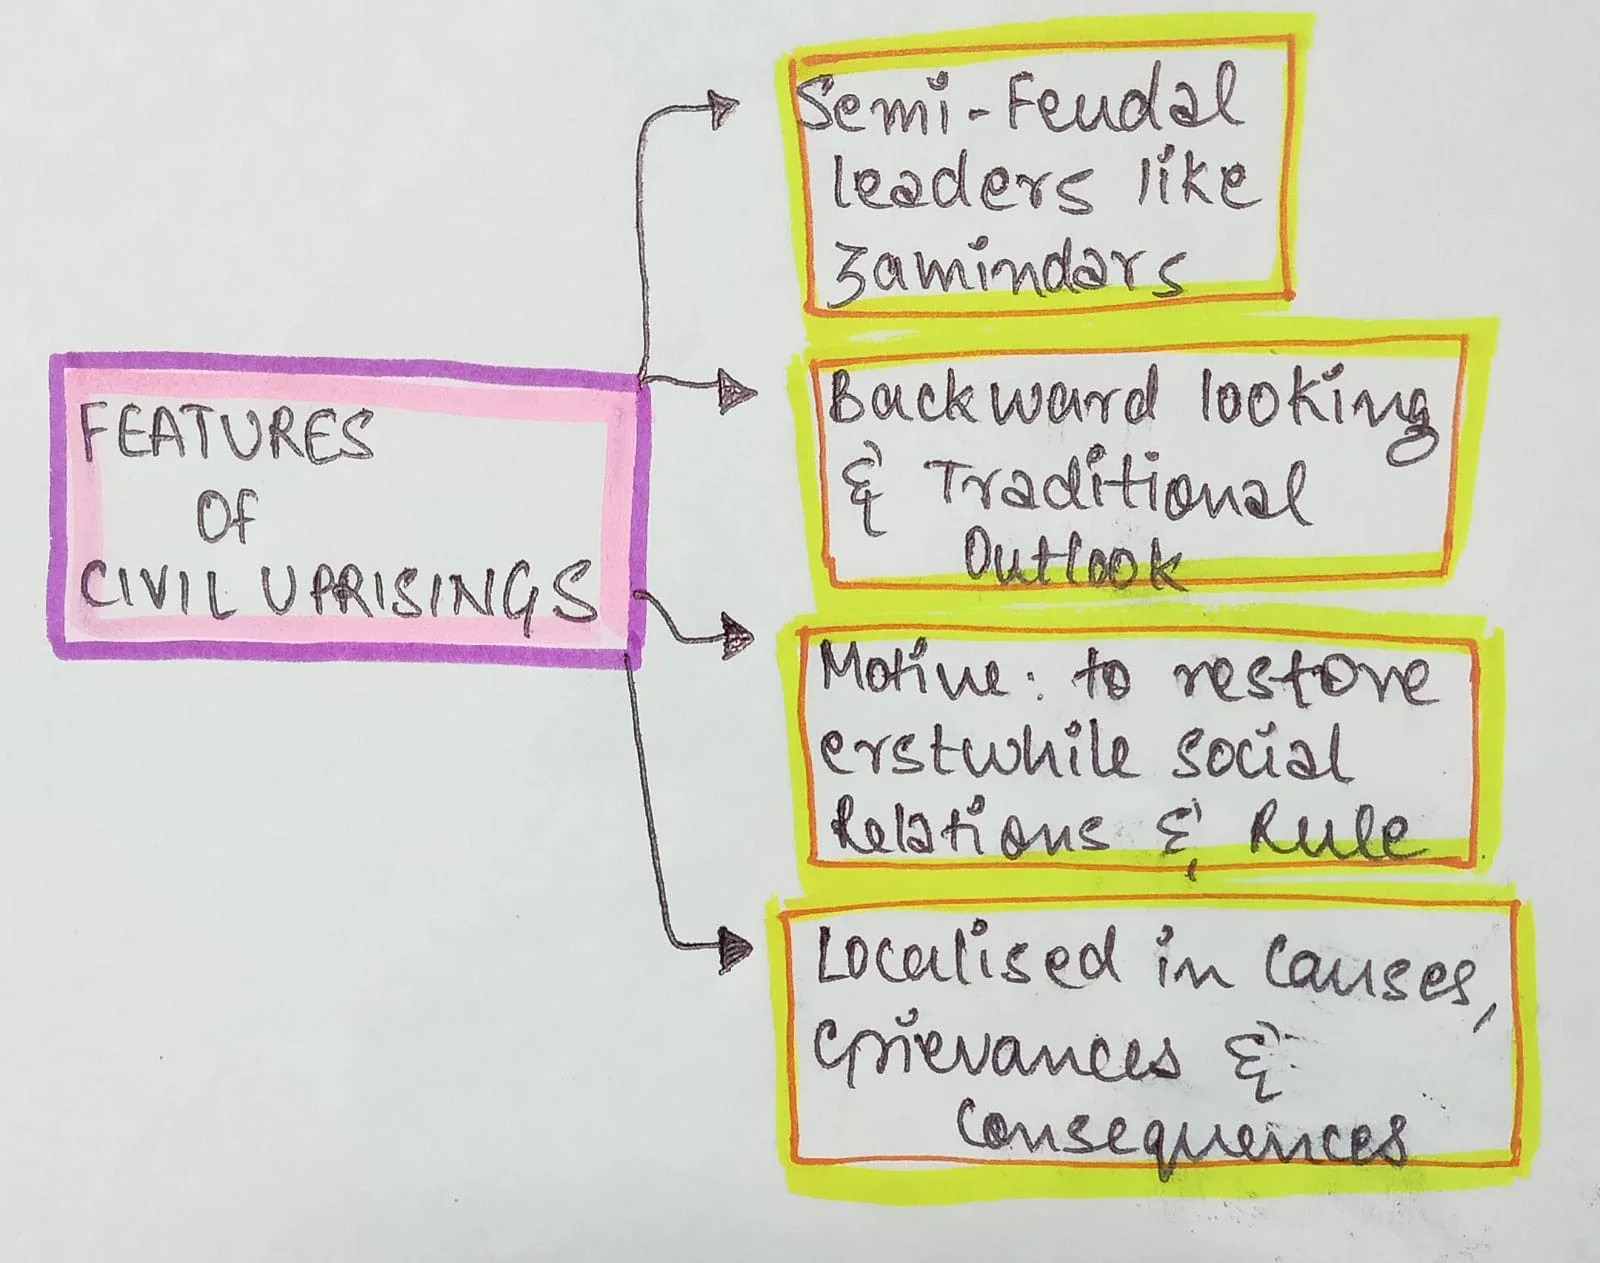 FEATURES
OF
CIVIL UPRISINGS
Semi-Feudal
leaders like
zamindars
Backward looking
& Traditional
Outlook
Motive: to restore
erstwhile social
Relations & Rule
Localised in Causes,
Grievances &
Consequences